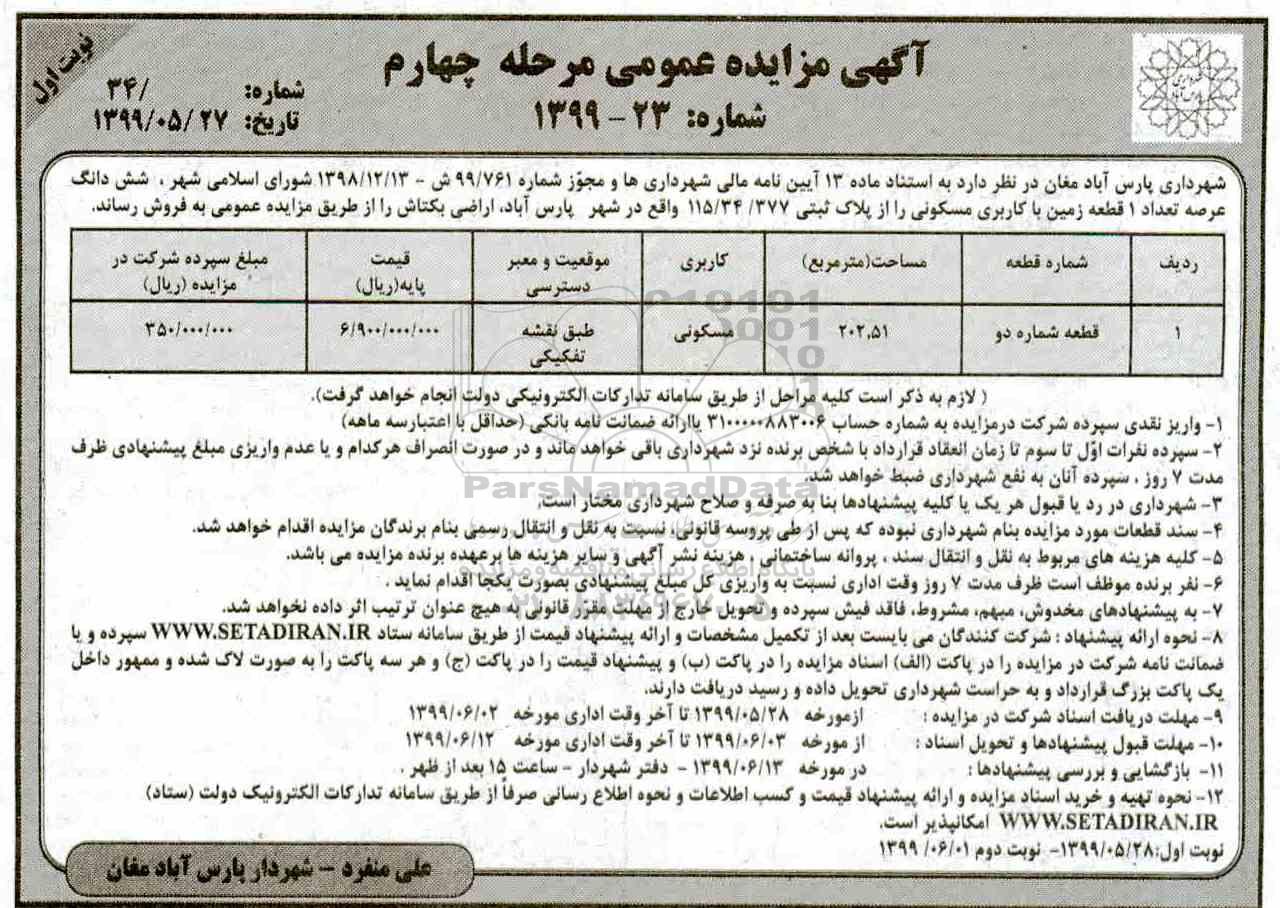 نوبت اول
آگهی مزایده عمومی مرحله چهارم
شماره: ۲۳ - ۱۳۹۹
شماره: /۳۴
تاریخ: ۱۳۹۹/۰۵/۲۷
شهرداری پارس آباد
شهرداری پارس آباد مغان در نظر دارد به استناد ماده ۱۳ آیین نامه مالی شهرداری ها و مجوّز شماره ۹۹/۷۶۱ ش - ۱۳۹۸/۱۲/۱۳ شورای اسلامی شهر ، شش دانگ
عرصه تعداد ۱ قطعه زمین با کاربری مسکونی را از پلاک ثبتی ۳۷۷/ ۱۱۵/۳۴ واقع در شهر پارس آباد، اراضی بکتاش را از طریق مزایده عمومی به فروش رساند.
ردیف شماره قطعه مساحت(مترمربع) کاربری موقعیت و معبر دسترسی قیمت پایه(ریال) مبلغ سپرده شرکت در مزایده (ریال)
۱ قطعه شماره دو ۲۰۲,۵۱ مسکونی طبق نقشه تفکیکی ۶/۹۰۰/۰۰۰/۰۰۰ ۳۵۰/۰۰۰/۰۰۰
( لازم به ذکر است کلیه مراحل از طریق سامانه تدارکات الکترونیکی دولت انجام خواهد گرفت).
۱- واریز نقدی سپرده شرکت درمزایده به شماره حساب ۳۱۰۰۰۰۰۸۸۳۰۰۶ یاارائه ضمانت نامه بانکی (حداقل با اعتبارسه ماهه)
۲- سپرده نفرات اوّل تا سوم تا زمان انعقاد قرارداد با شخص برنده نزد شهرداری باقی خواهد ماند و در صورت انصراف هرکدام و یا عدم واریزی مبلغ پیشنهادی ظرف
مدت ۷ روز ، سپرده آنان به نفع شهرداری ضبط خواهد شد.
۳- شهرداری در رد یا قبول هر یک یا کلیه پیشنهادها بنا به صرفه و صلاح شهرداری مختار است.
۴- سند قطعات مورد مزایده بنام شهرداری نبوده که پس از طی پروسه قانونی، نسبت به نقل و انتقال رسمی بنام برندگان مزایده اقدام خواهد شد.
۵- کلیه هزینه های مربوط به نقل و انتقال سند ، پروانه ساختمانی ، هزینه نشر آگهی و سایر هزینه ها برعهده برنده مزایده می باشد.
۶- نفر برنده موظف است ظرف مدت ۷ روز وقت اداری نسبت به واریزی کل مبلغ پیشنهادی بصورت یکجا اقدام نماید .
۷- به پیشنهادهای مخدوش، مبهم، مشروط، فاقد فیش سپرده و تحویل خارج از مهلت مقرر قانونی به هیچ عنوان ترتیب اثر داده نخواهد شد.
۸- نحوه ارائه پیشنهاد : شرکت کنندگان می بایست بعد از تکمیل مشخصات و ارائه پیشنهاد قیمت از طریق سامانه ستاد WWW.SETADIRAN.IR سپرده و یا
ضمانت نامه شرکت در مزایده را در پاکت (الف) اسناد مزایده را در پاکت (ب) و پیشنهاد قیمت را در پاکت (ج) و هر سه پاکت را به صورت لاک شده و ممهور داخل
یک پاکت بزرگ قرارداد و به حراست شهرداری تحویل داده و رسید دریافت دارند.
۹- مهلت دریافت اسناد شرکت در مزایده : ازمورخه ۱۳۹۹/۰۵/۲۸ تا آخر وقت اداری مورخه ۱۳۹۹/۰۶/۰۲
۱۰- مهلت قبول پیشنهادها و تحویل اسناد : از مورخه ۱۳۹۹/۰۶/۰۳ تا آخر وقت اداری مورخه ۱۳۹۹/۰۶/۱۲
۱۱- بازگشایی و بررسی پیشنهادها : در مورخه ۱۳۹۹/۰۶/۱۳ - دفتر شهردار - ساعت ۱۵ بعد از ظهر .
۱۲- نحوه تهیه و خرید اسناد مزایده و ارائه پیشنهاد قیمت و کسب اطلاعات و نحوه اطلاع رسانی صرفاً از طریق سامانه تدارکات الکترونیک دولت (ستاد)
WWW.SETADIRAN.IR امکانپذیر است.
نوبت اول:۱۳۹۹/۰۵/۲۸- نوبت دوم ۱۳۹۹ /۰۶/۰۱
علی منفرد - شهردار پارس آباد مغان
ParsNamadData
پایگاه اطلاع رسانی مناقصه و مزایده